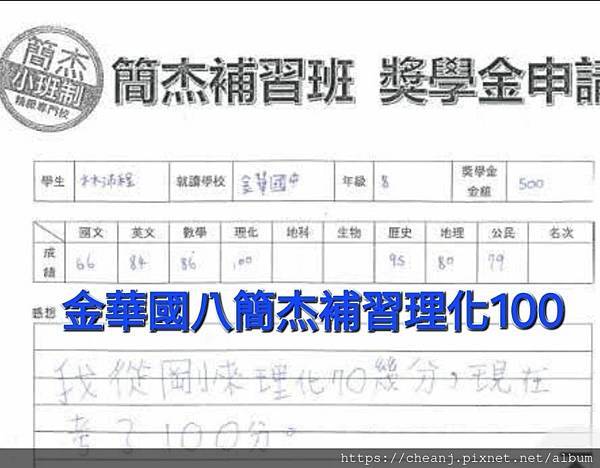 簡杰
小班制
精緻專門校
簡杰補習班 獎學金申請
學生 林沛程 就讀學校 金華國中 年級 8 獎學金金額 500
國文 英文 數學 理化 地科 生物 歷史 地理 公民 名次
成績 66 84 86 100 95 80 79
感想
金華國八簡杰補習理化100
我從剛來理化70幾分,現在
考了100分。
https://cheanj.pixnet.net/album